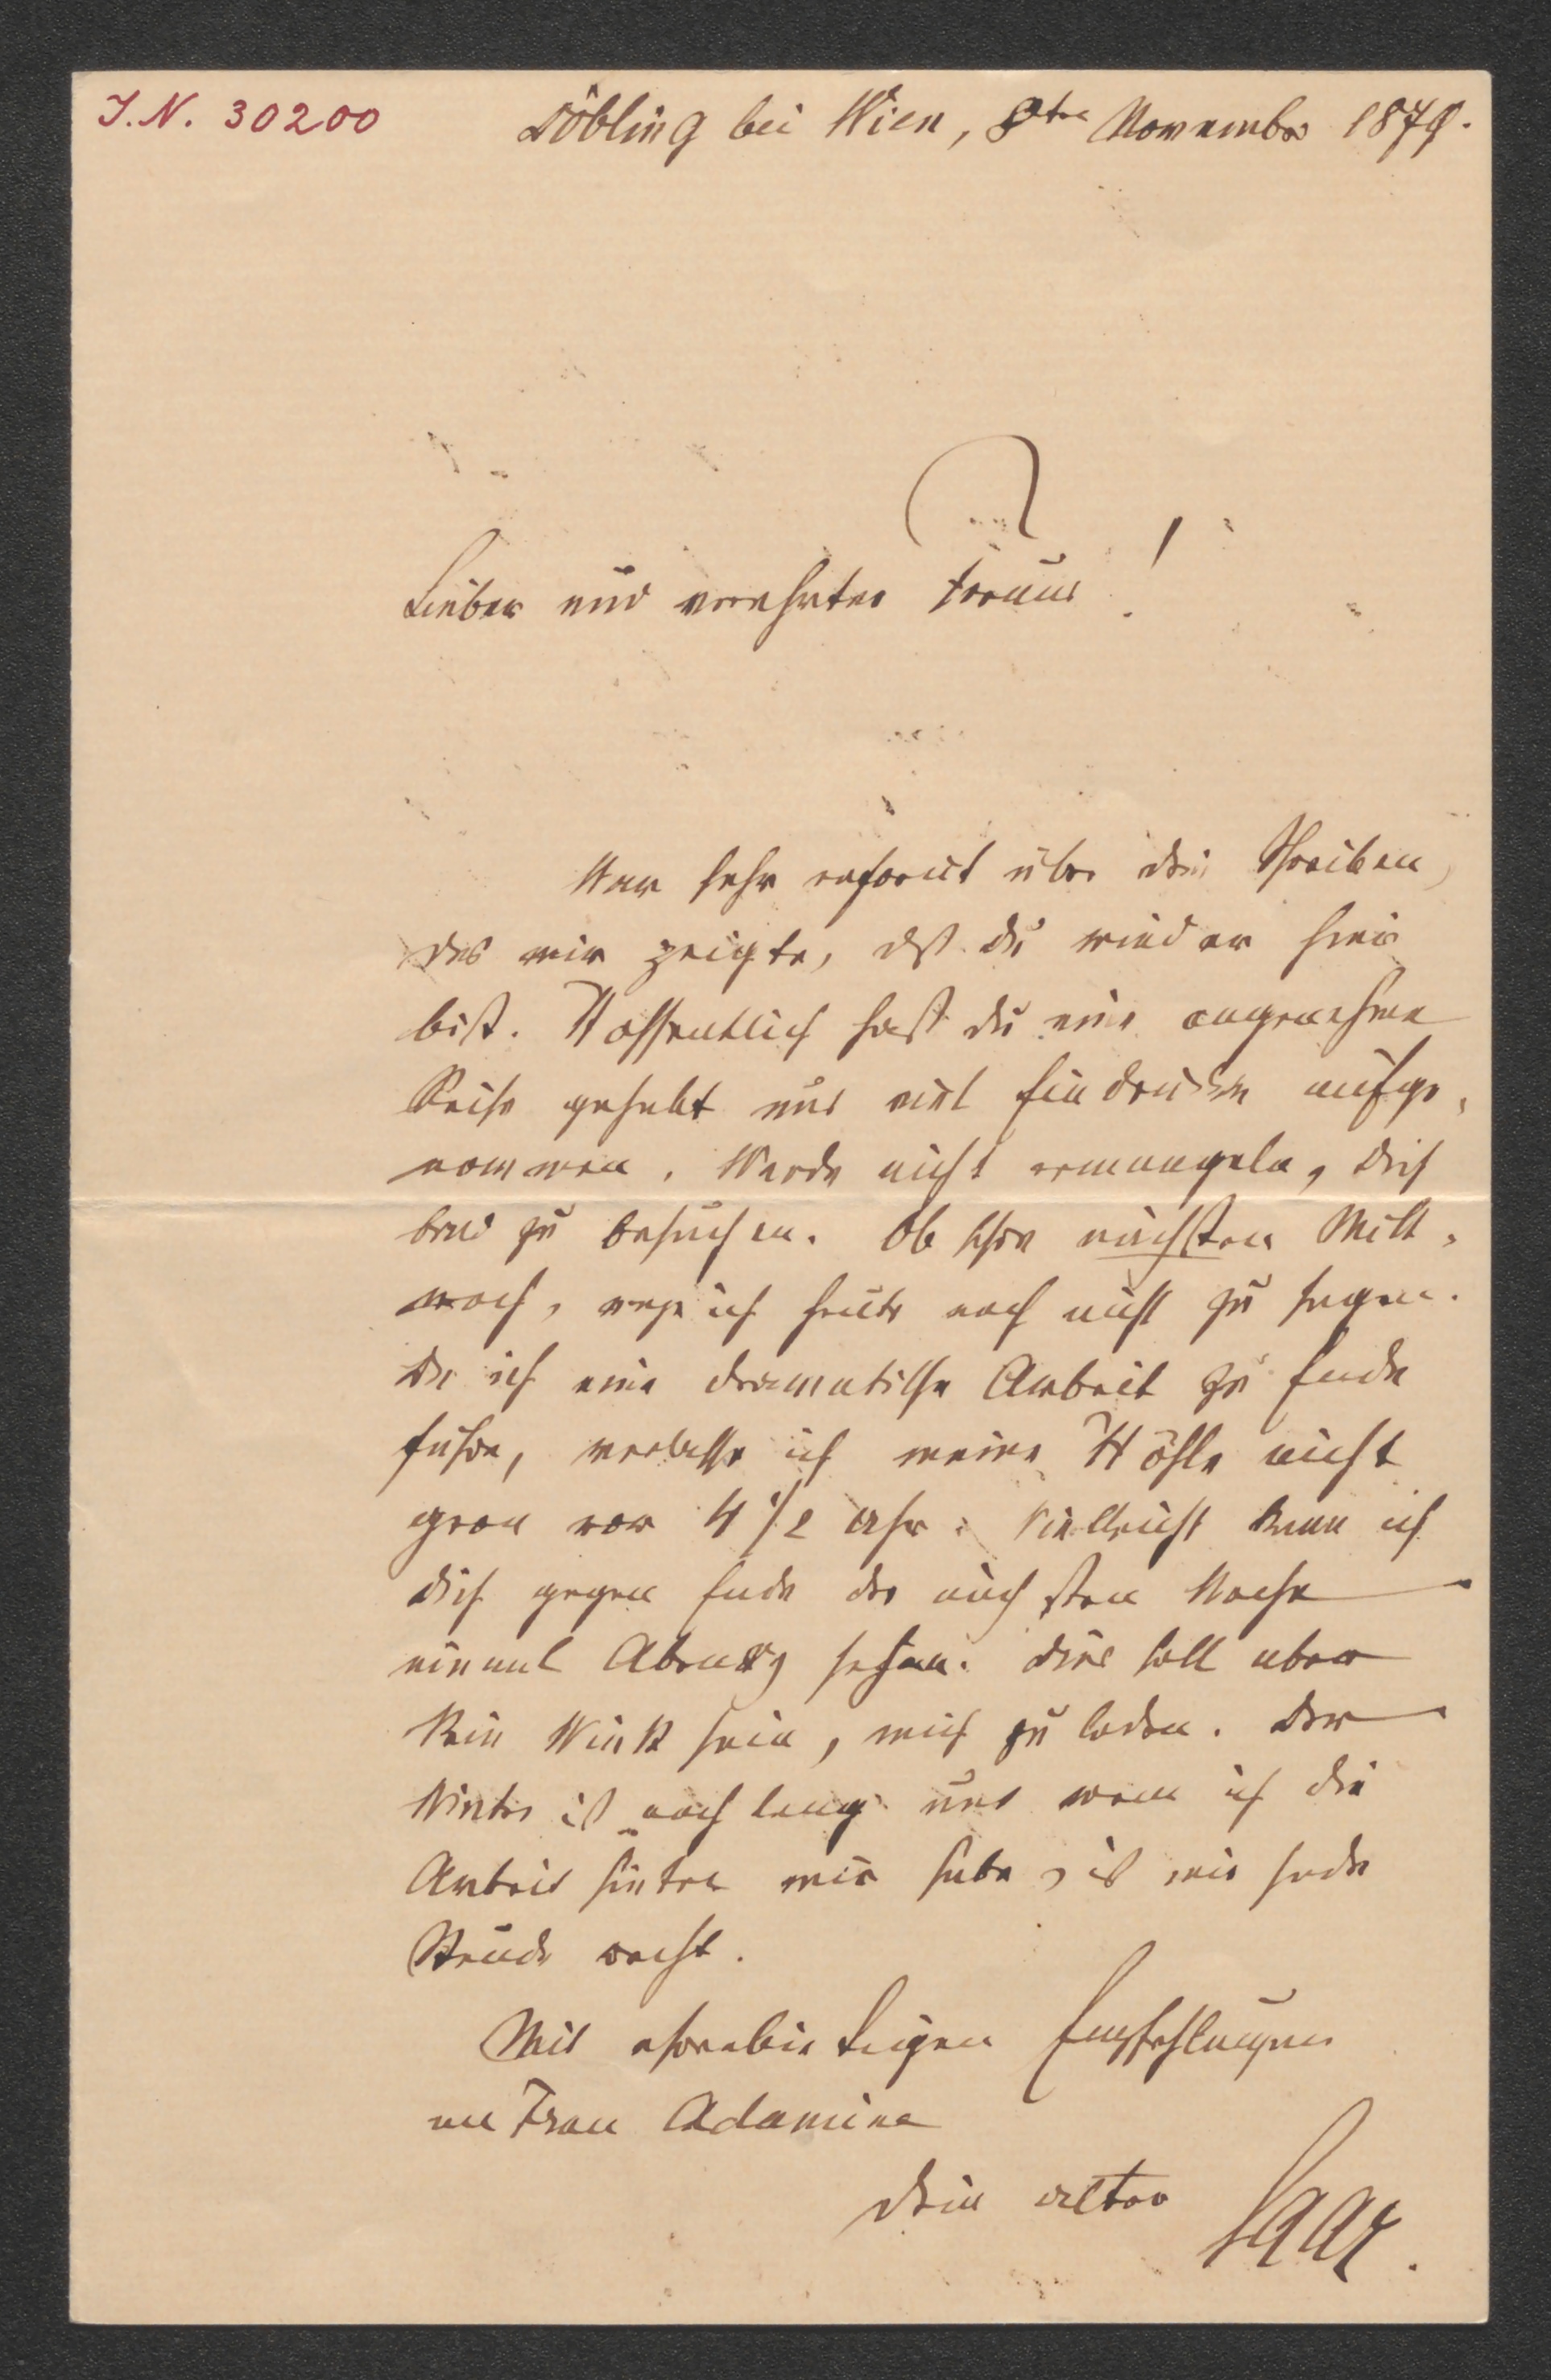 J.N. 30200
Döbling bei Wien, 8ten November 1879.
Lieber und verehrter Freund!
War sehr erfreut über dein Schreiben,
das mir zeigte, dß du wieder hier
bist. Hoffentlich hast du eine angenehme
Reise gehabt und viel Eindrücke aufge-
nommen. Werde nicht ermangeln, dich
bald zu besuchen. Ob schon nächsten Mitt-
woch, wage ich heute noch nicht zu sagen.
Da ich eine dramatische Arbeit zu Ende
führe, verlasse ich meine Höhle nicht
gern vor 4 1/2 Uhr. Vielleicht kann ich
dich gegen Ende der nächsten Woche
einmal Abends sehen. Dies soll aber
kein Wink sein, mich zu laden. Der
Winter ist noch lang und wenn ich die
Arbeit hinter mir habe, ist mir jede
Stunde recht.
Mit ehrerbietigen Empfehlungen
an Frau Adamine
dein alter Saar.